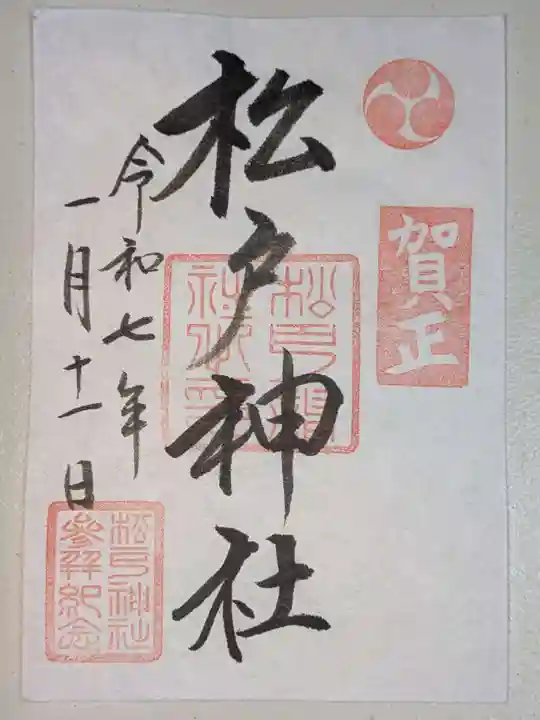 賀正
松戸神社
松戸神社印
令和七年
一月十一日
松戸神社
参拝紀念